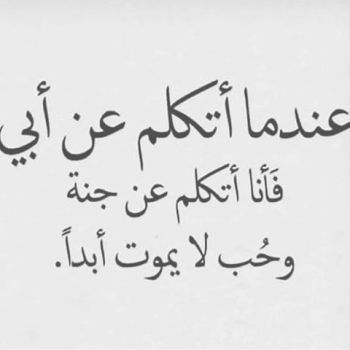 عندما أتكلم عن أبي
فَأنا أتكلم عن جنة
وحُب لا يموت أبداً.